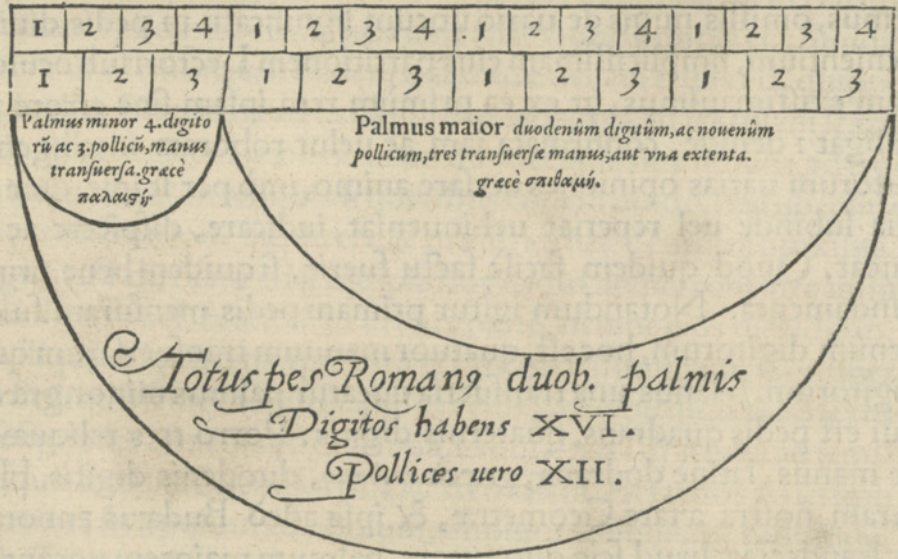 1 2 3 4 1 2 3 4 1 2 3 4 1 2 3 4
1 2 3 1 2 3 1 2 3 1 2 3
Palmus minor 4. digito
rũ ac 3. pollicũ, manus
tranſuerſa. græcè
παλαιϛὴ
Palmus maior duodenûm digitûm, ac nouenûm
pollicum, tres tranſuerſæ manus, aut vna extenta.
græcè σπιθαμὴ.
Totus pes Romanꝯ duob. palmis
Digitos habens XVI.
Pollices uero XII.